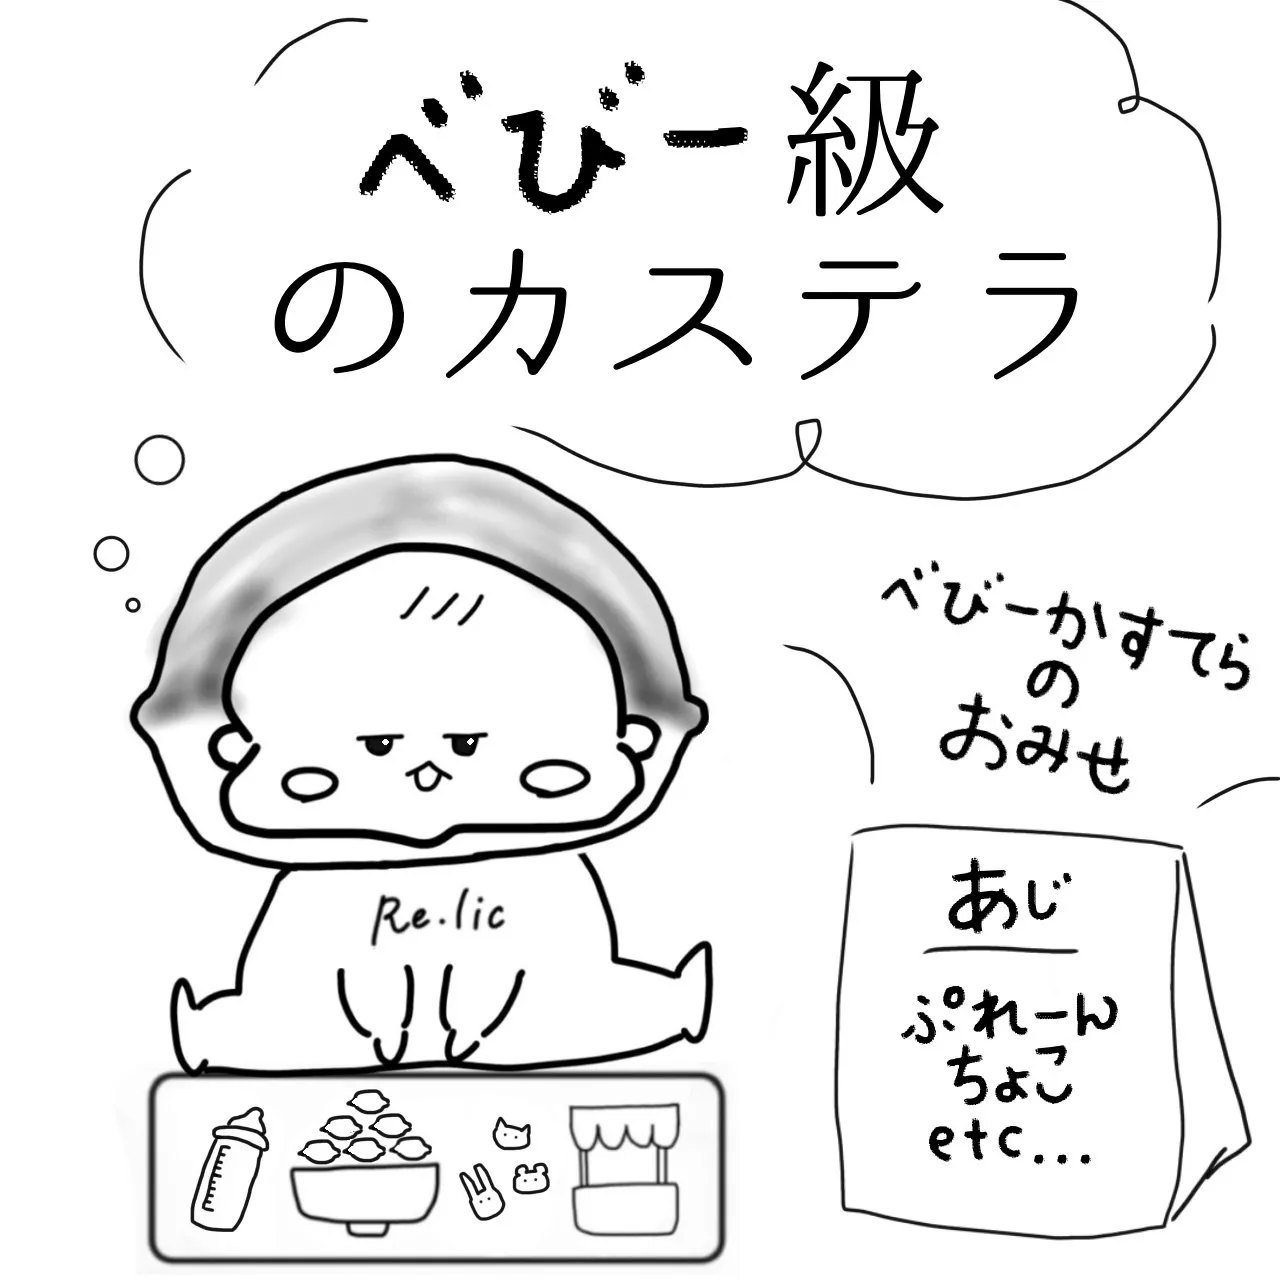 べびー級
のカステラ
べびーかすてら
の
おみせ
Re.lic
あじ
ぷれーん
ちょこ
etc...